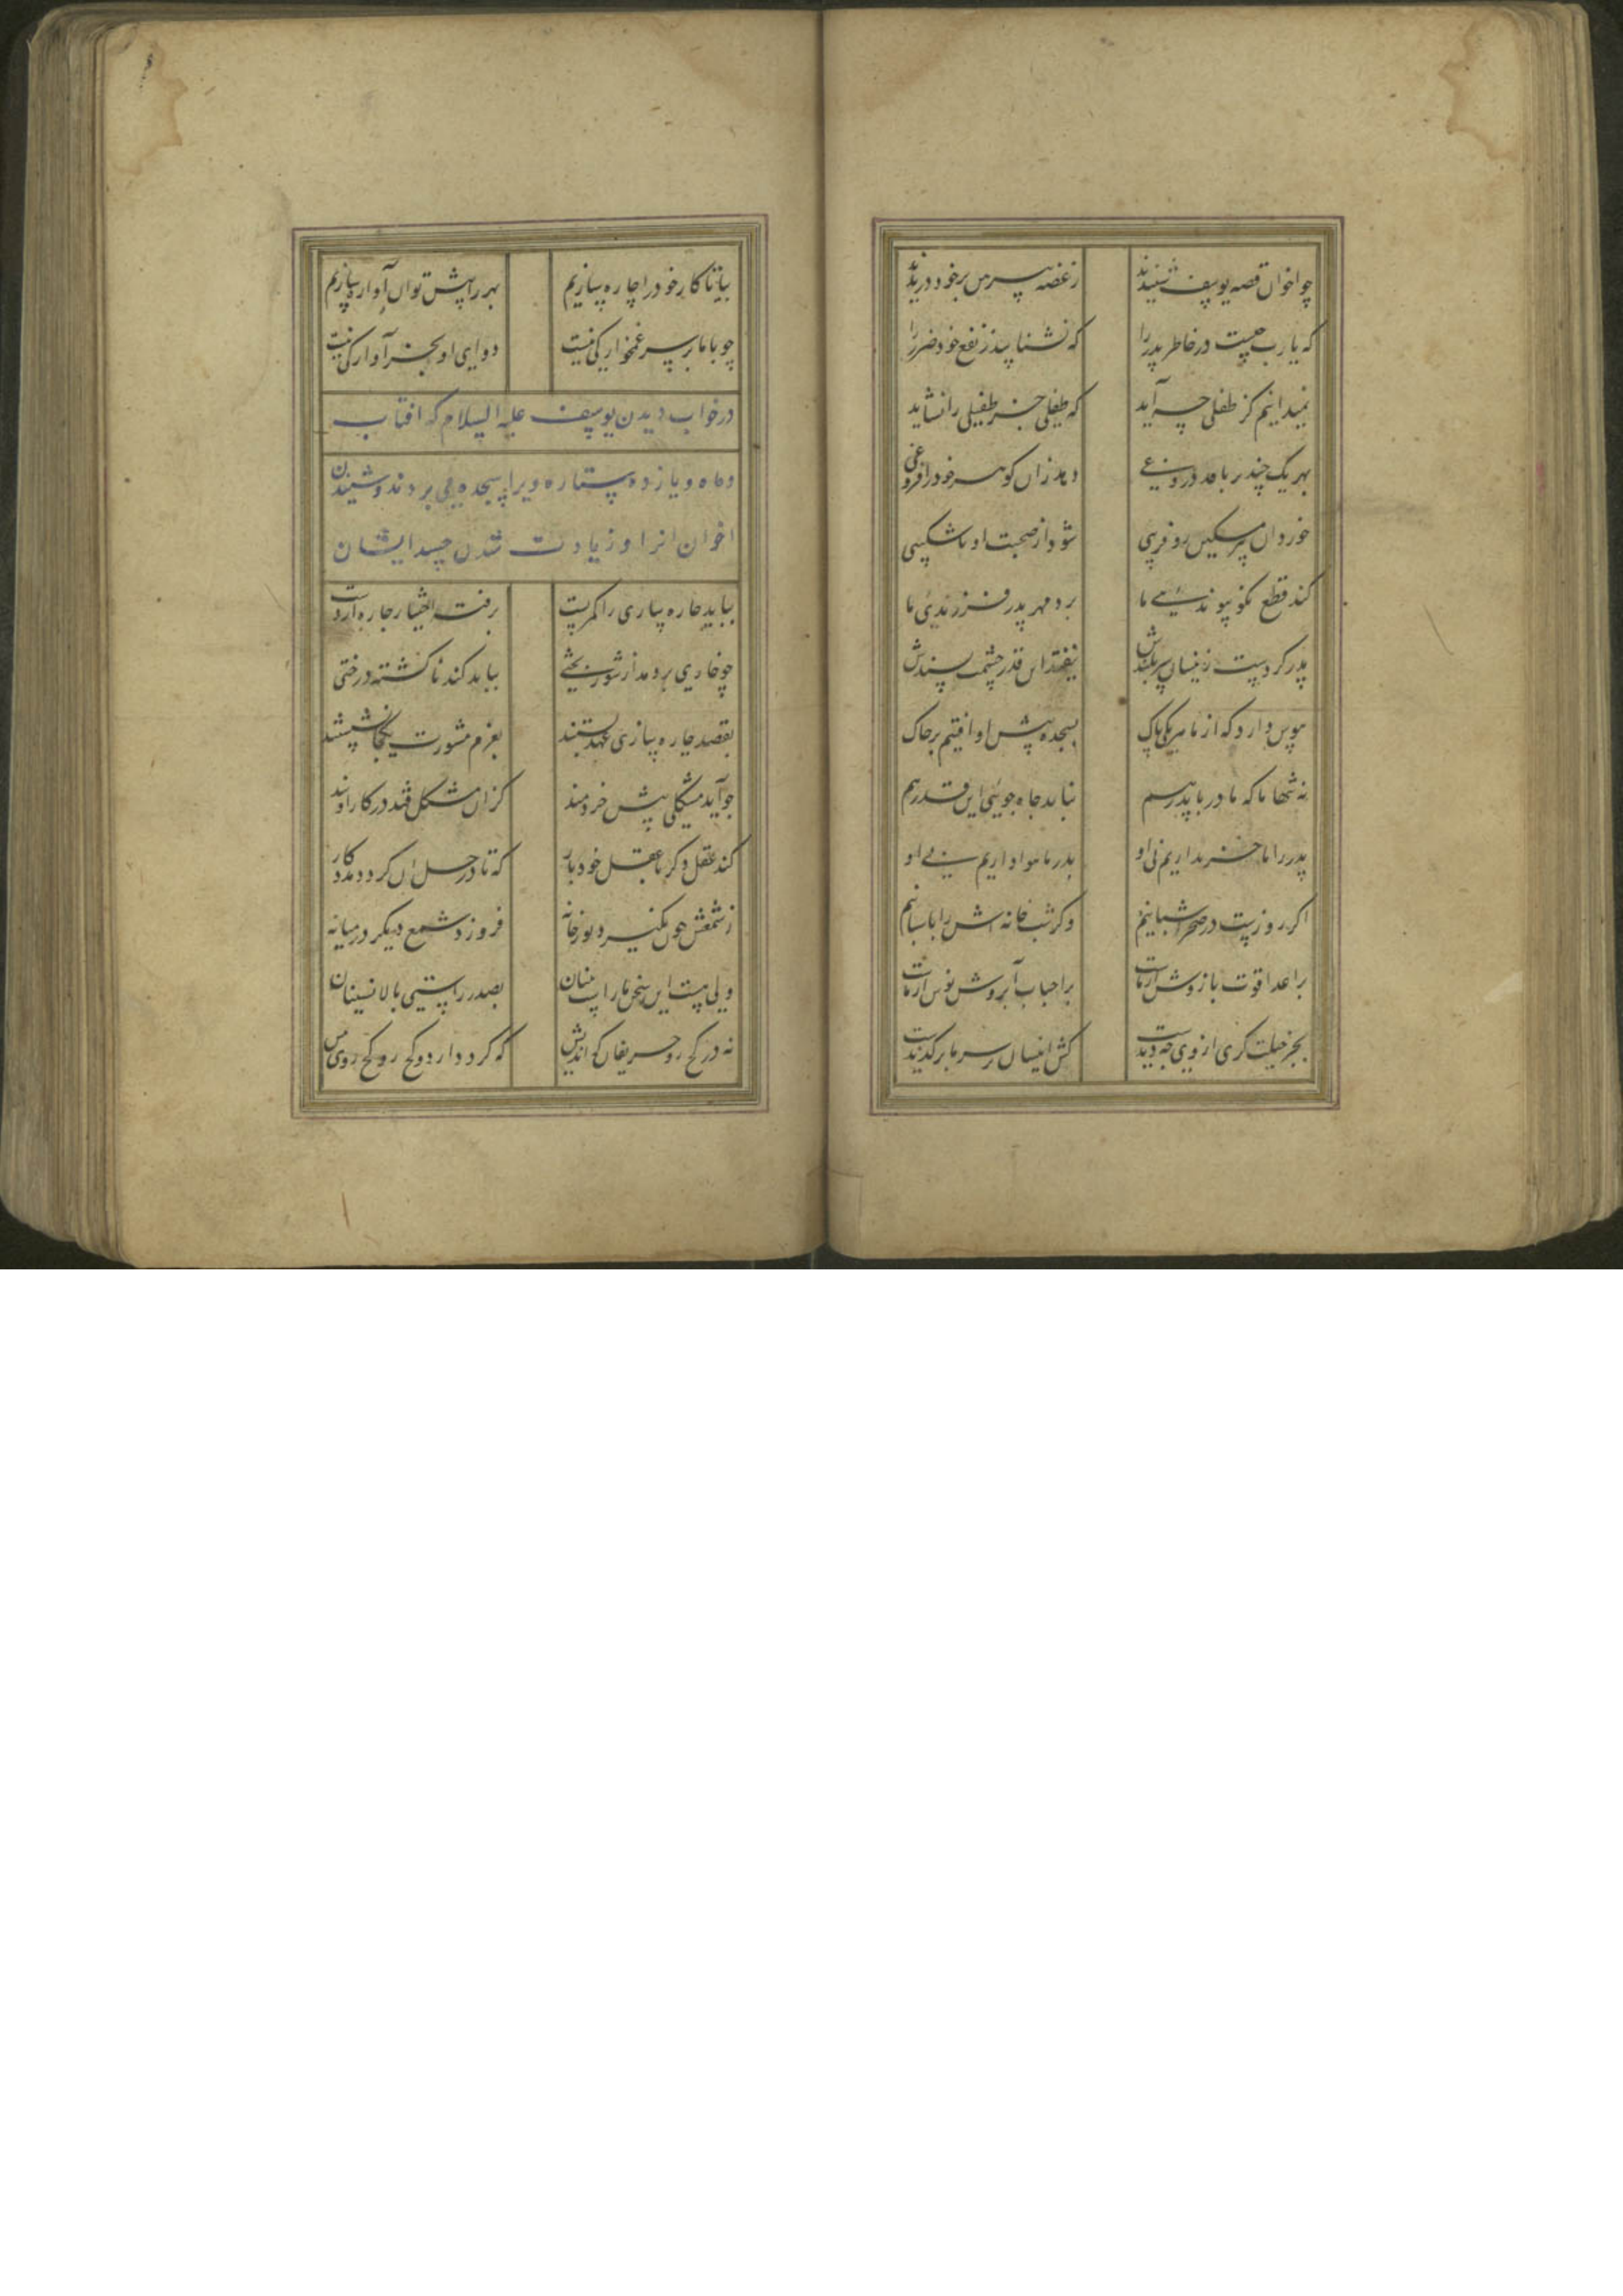 چو اخوان قصه یوسف شنیدند ز غصه پیرهن بر خود دریدند
که یا رب چیست در خاطر پدر را که نشناسد ز نفع خود ضرر را
نمیدانیم کز طفلی چه آید که طفلی جز طفیلی را نشاید
بهر یک چند بر بافد دروغی دهد زان گوهر خود را فروغی
خورد آن پیر مسکین زو فریبی شود از صحبت او ناشکیبی
کند قطع نکو پیوندی ما برد مهر پدر فرزندی ما
پدر کردست زینسان سربلندش نیفتد این قدر حشمت پسندش
هوس دارد که از ما هر یکی پاک بسجده پیش او افتیم بر خاک
نه تنها ما که مادر با پدر هم نباید جاه جویی این قدر هم
پدر را ما خریداریم نی او پدر را ما هواداریم نی او
اگر روزست در صحرا شبانیم وگر شب خانه اش را پاسبانیم
بر اعدا قوت بازوش از ماست بر احباب آبروش از ماست
بجز حیلت گری از وی چه دیدست کش اینسان بر سر ما برگزیدست
بیا تا کار خود را چاره سازیم بهر راهش توان آواره سازیم
چو با ما بر سر غمخوارگی نیست دوای او بجز آوارگی نیست
در خواب دیدن یوسف علیه السلام که افتاب
و ماه و یازده ستاره ویرا سجده می بردند و شنیدن
اخوان انرا و زیادت شدن حسد ایشان
بباید چاره سازی را کمر بست نرفته اختیار چاره از دست
چو خاری بر دمد از شور بختی بباید کند ناگشته درختی
بقصد چاره سازی عهد بستند بعزم مشورت یکجا نشستند
چو آید مشکلی پیش خردمند کزان مشکل فتد در کار او بند
کند عقل دگر با عقل خود یار که تا در حل آن گردد مددکار
ز شمعش چون نگیرد نور خانه فروزد شمع دیگر در میانه
ولی هست این سخن با راست بینان بصدر راستی بالا نشینان
نه در کج رو حریفان کج اندیش که گردد از دو کج رو کجروی بیش